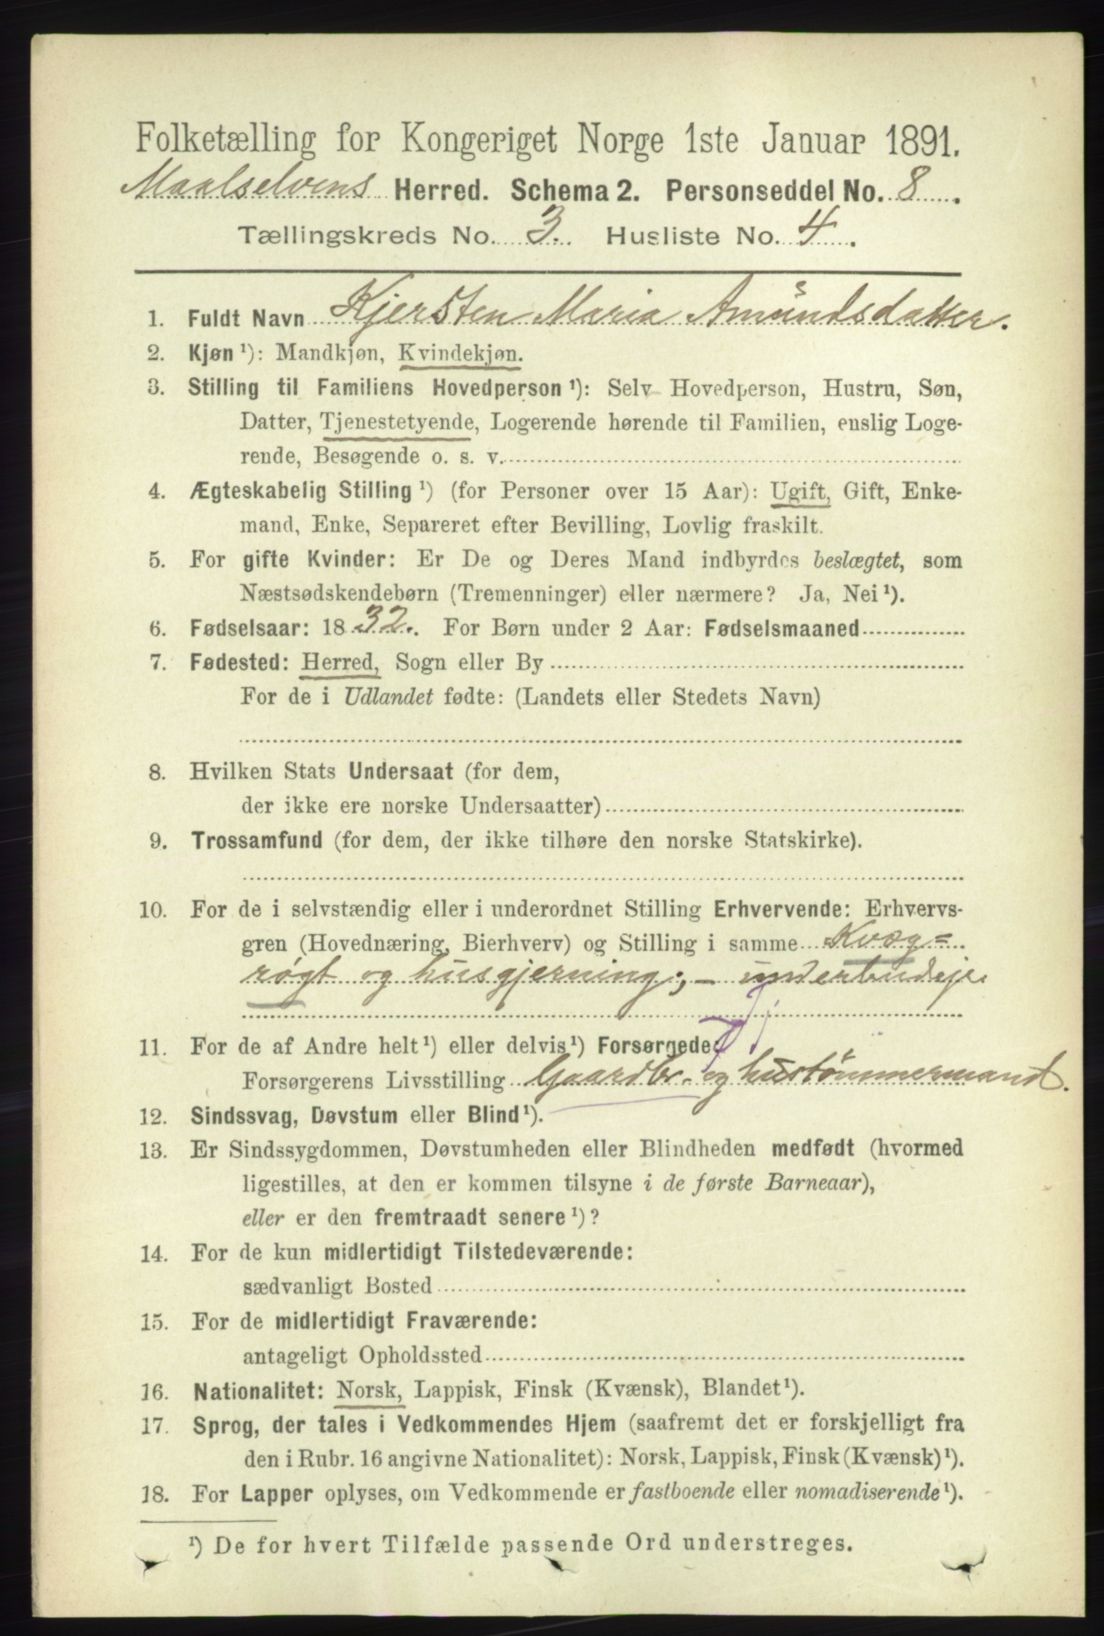 Folketælling for Kongeriget Norge 1ste Januar 1891.
Maalselvens Herred. Schema 2. Personseddel No. 8.
Tællingskreds No. 3. Husliste No. 4.
1. Fuldt Navn Kjersten Maria Amundsdatter.
2. Kjøn ¹): Mandkjøn, Kvindekjøn.
3. Stilling til Familiens Hovedperson ¹): Selv Hovedperson, Hustru, Søn,
Datter, Tjenestetyende, Logerende hørende til Familien, enslig Loge-
rende, Besøgende o. s. v.
4. Ægteskabelig Stilling ¹) (for Personer over 15 Aar): Ugift, Gift, Enke-
mand, Enke, Separeret efter Bevilling, Lovlig fraskilt.
5. For gifte Kvinder: Er De og Deres Mand indbyrdes beslægtet, som
Næstsødskendebørn (Tremenninger) eller nærmere? Ja, Nei ¹).
6. Fødselsaar: 1832. For Børn under 2 Aar: Fødselsmaaned
7. Fødested: Herred, Sogn eller By
For de i Udlandet fødte: (Landets eller Stedets Navn)
8. Hvilken Stats Undersaat (for dem,
der ikke ere norske Undersaatter)
9. Trossamfund (for dem, der ikke tilhøre den norske Statskirke).
10. For de i selvstændig eller i underordnet Stilling Erhvervende: Erhvervs-
gren (Hovednæring, Bierhverv) og Stilling i samme Kvæg=
røgt og husgjerning; - underbudeje
11. For de af Andre helt ¹) eller delvis ¹) Forsørgede:
Forsørgerens Livsstilling Gaardbr. og hustømmermand.
12. Sindssvag, Døvstum eller Blind ¹).
13. Er Sindssygdommen, Døvstumheden eller Blindheden medfødt (hvormed
ligestilles, at den er kommen tilsyne i de første Barneaar),
eller er den fremtraadt senere ¹)?
14. For de kun midlertidigt Tilstedeværende:
sædvanligt Bosted
15. For de midlertidigt Fraværende:
antageligt Opholdssted
16. Nationalitet: Norsk, Lappisk, Finsk (Kvænsk), Blandet ¹).
17. Sprog, der tales i Vedkommendes Hjem (saafremt det er forskjelligt fra
den i Rubr. 16 angivne Nationalitet): Norsk, Lappisk, Finsk (Kvænsk) ¹).
18. For Lapper oplyses, om Vedkommende er fastboende eller nomadiserende ¹).
¹) De for hvert Tilfælde passende Ord understreges.